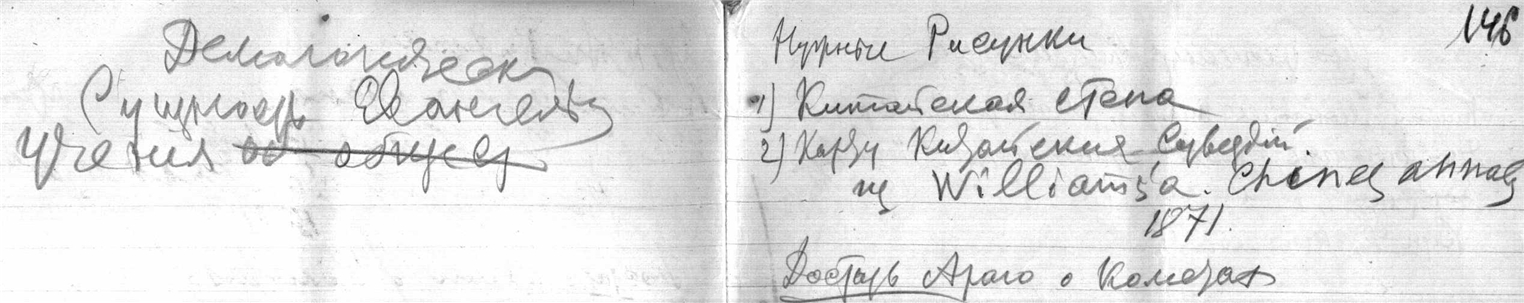 Демагогическ
Сущность Евангельс
учения об общес
146
Нужные Рисунки
1) Китайская стена
2) Карту Китайских Созвездий.
из Williams'a. Chines annals
1871.
Достать Араго о Кометах